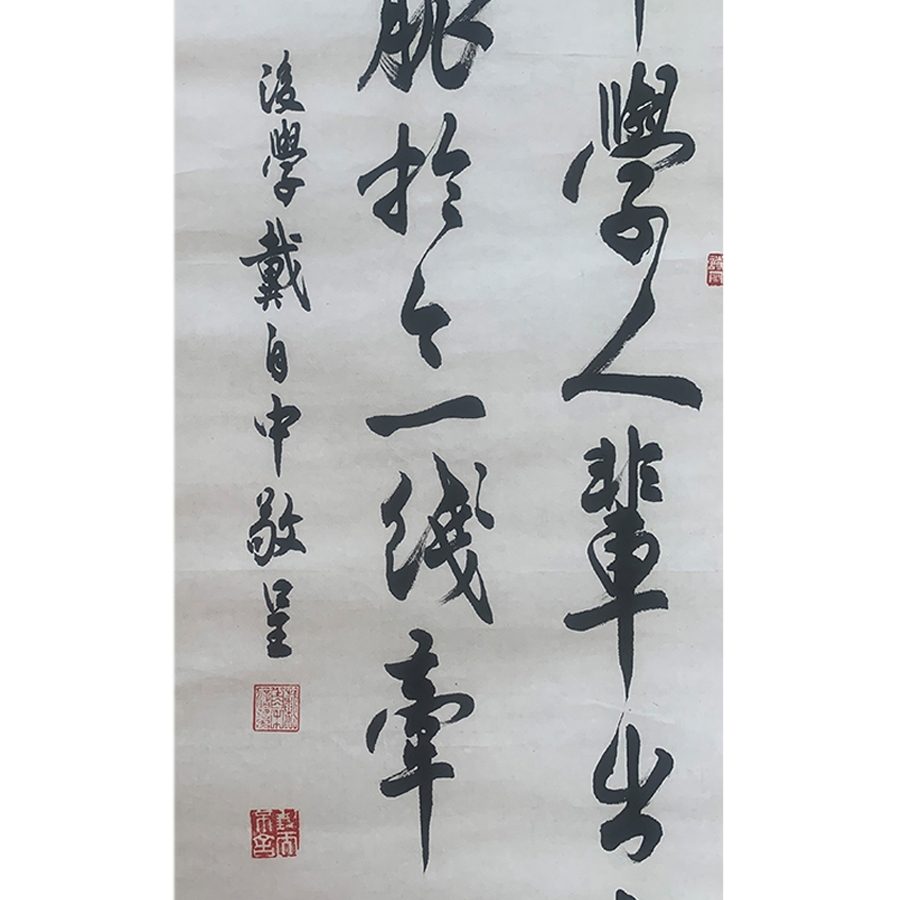 學人輩出
脈於今一綫牽
後學戴自中敬呈